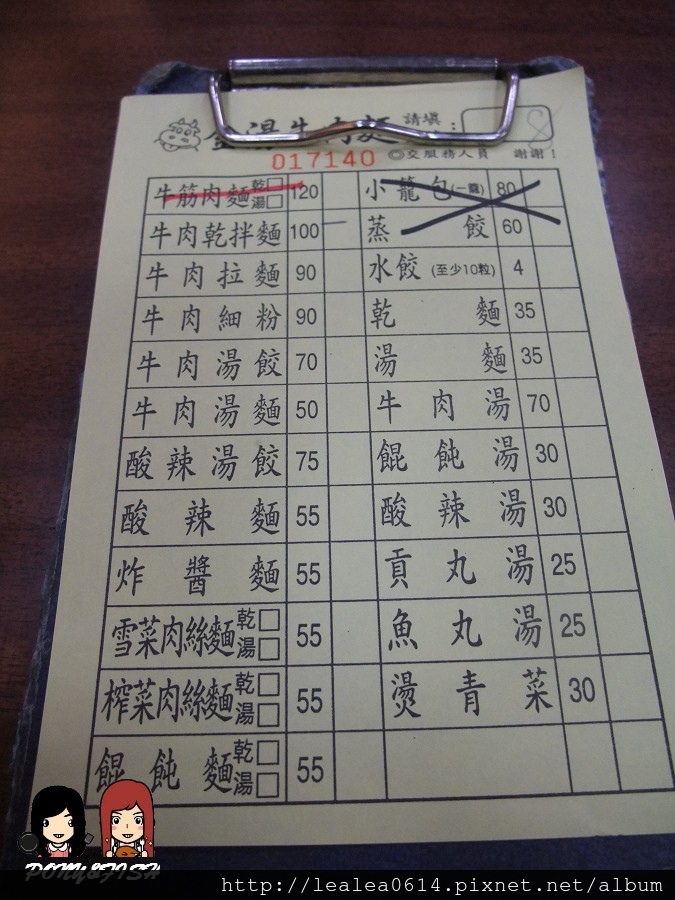 金湯牛肉麵 請填 : 8
017140 ◎交服務人員 謝謝！
牛筋肉麵 乾□ 湯□ 120
牛肉乾拌麵 100
牛肉拉麵 90
牛肉細粉 90
牛肉湯餃 70
牛肉湯麵 50
酸辣湯餃 75
酸辣麵 55
炸醬麵 55
雪菜肉絲麵 乾□ 湯□ 55
榨菜肉絲麵 乾□ 湯□ 55
餛飩麵 乾□ 湯□ 55
小籠包(一籠) 80
蒸餃 60
水餃(至少10粒) 4
乾麵 35
湯麵 35
牛肉湯 70
餛飩湯 30
酸辣湯 30
貢丸湯 25
魚丸湯 25
燙青菜 30
PONY&FISH
http://lealea0614.pixnet.net/album